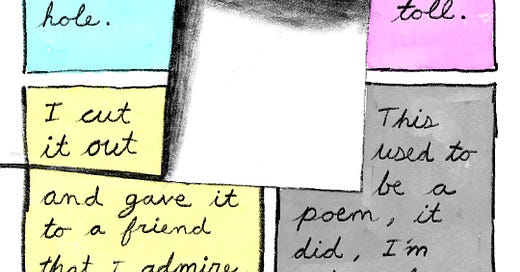 hole.
toll.
I cut
it out
and gave it
to a friend
that I admire.
This
used to
be a
poem, it
did, I'm